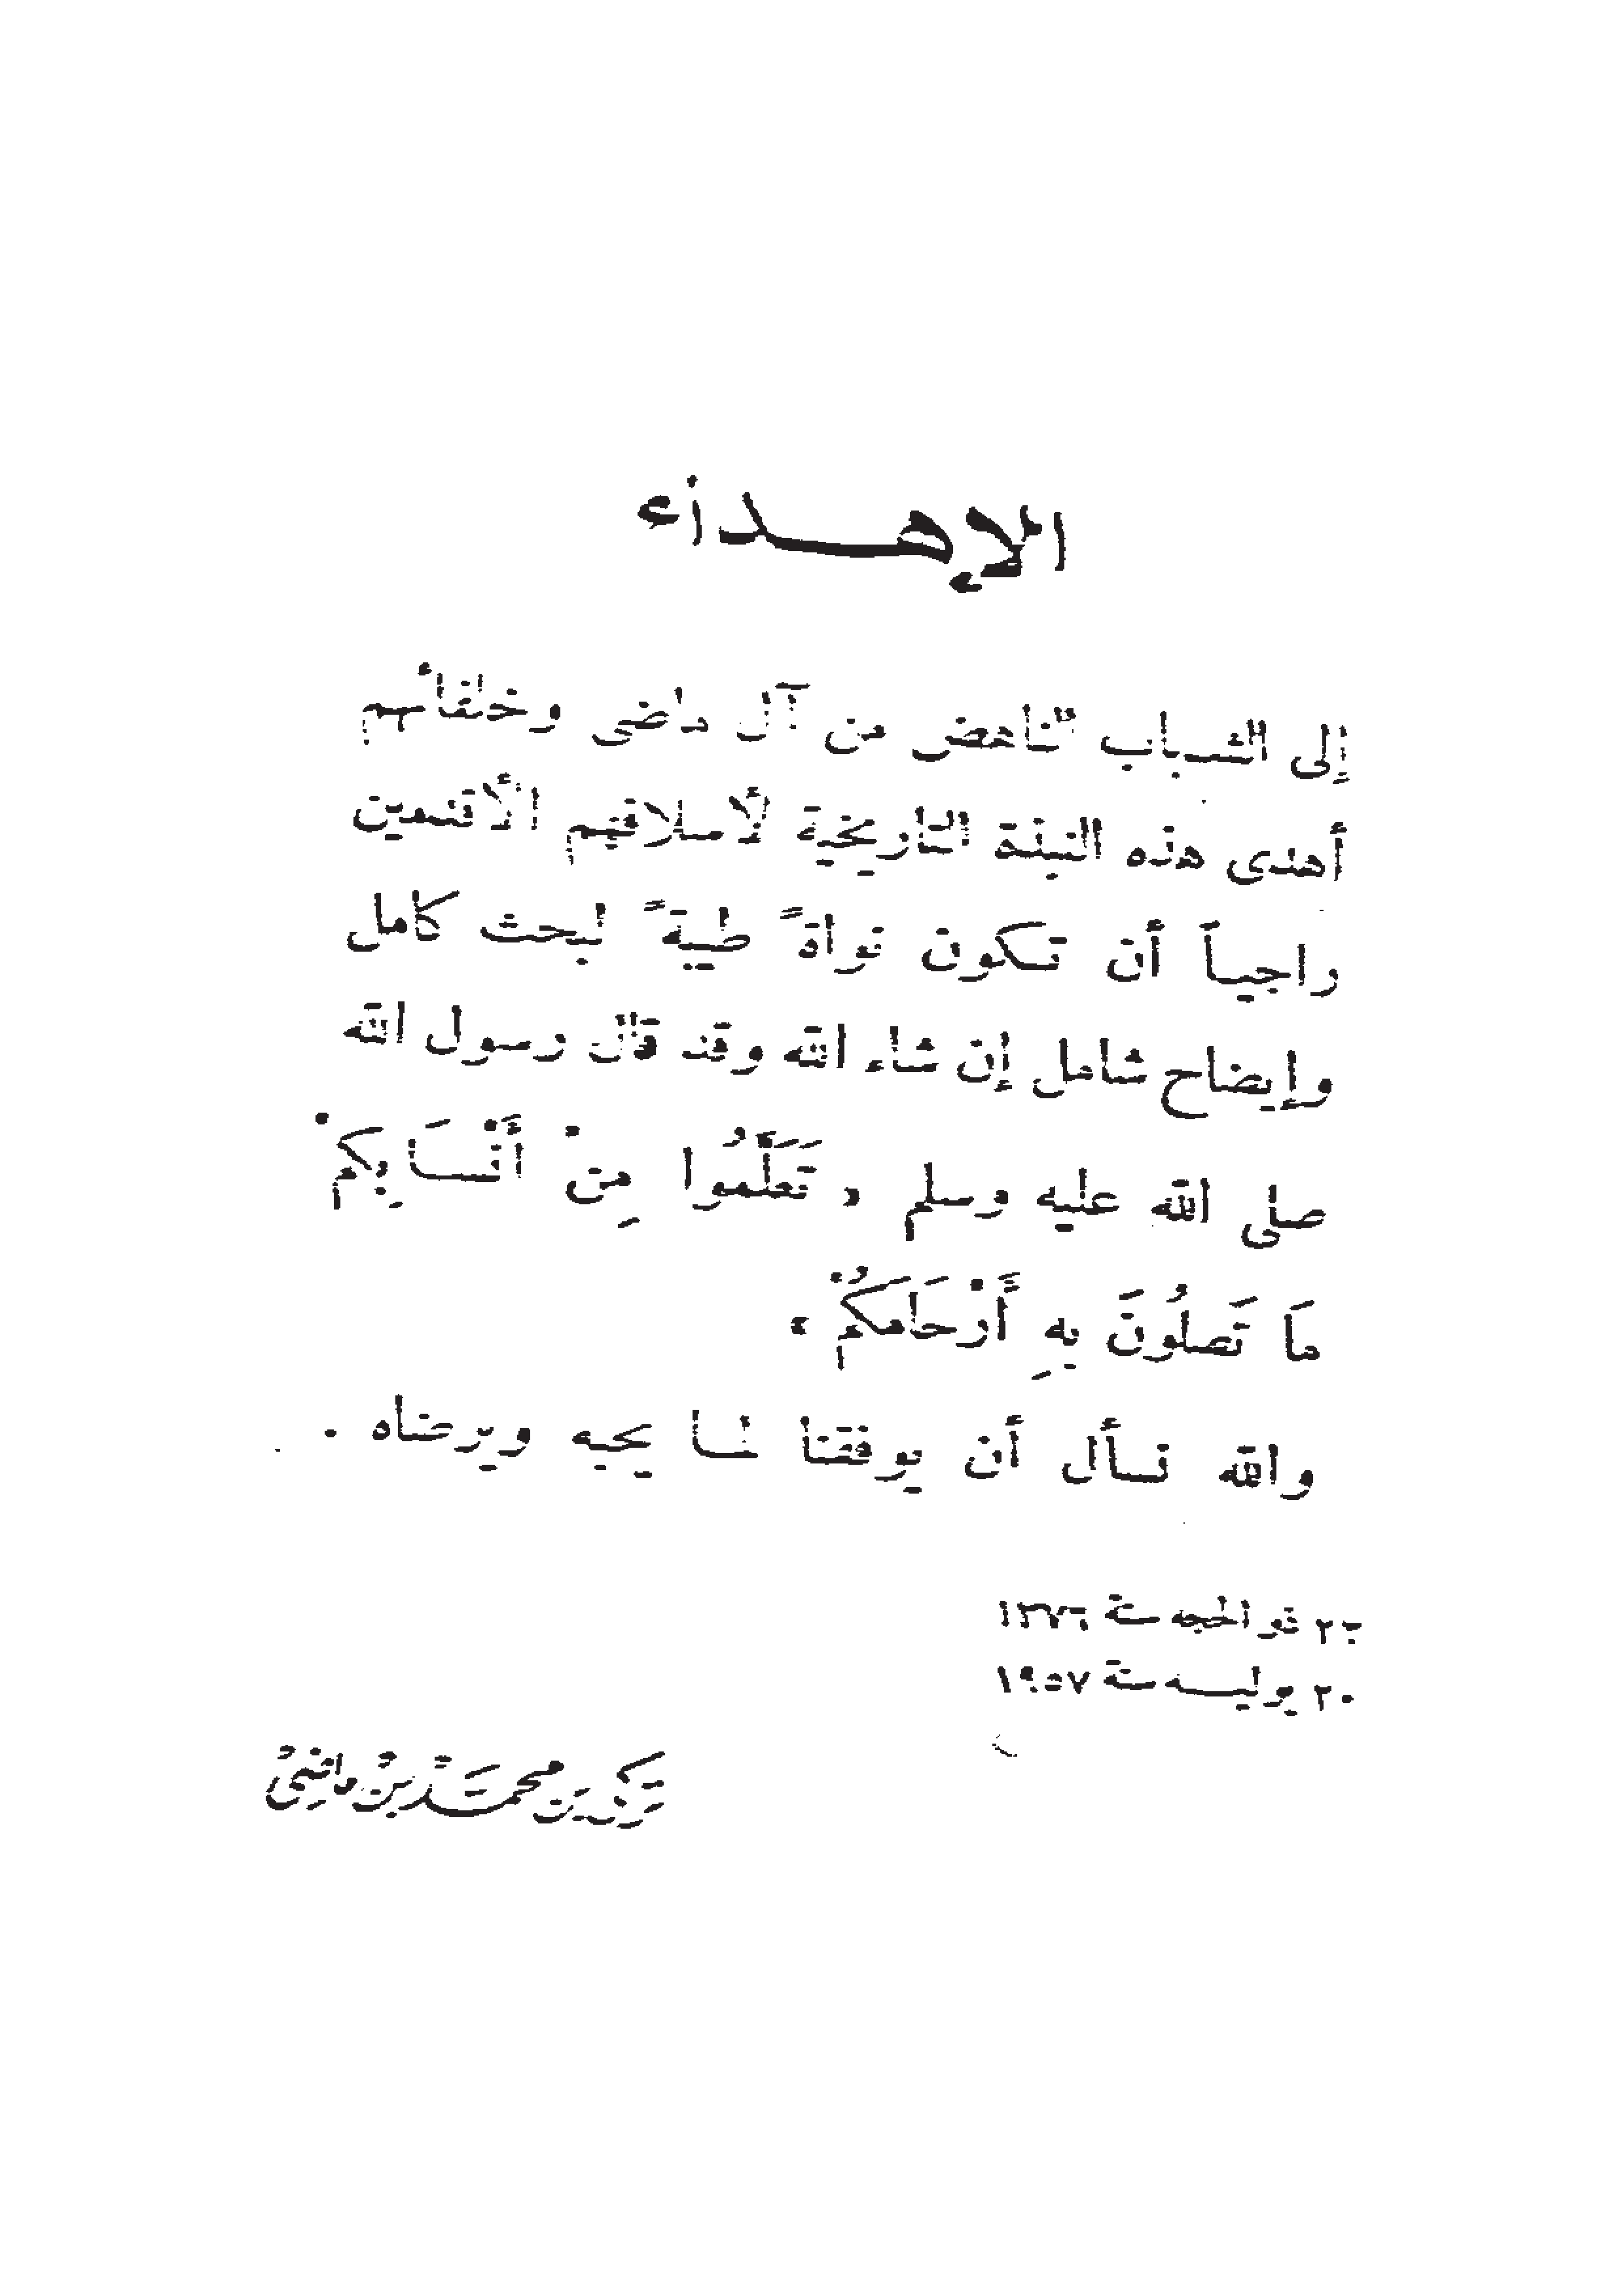 الإهداء
إلى الشباب الناهض من آل ماضى وخلفائهم
أهدى هذه النبذة التاريخية لأسلافهم الأقدمين
راجياً أن تكون نواةً طيبةً لبحث كامل
وإيضاح شامل إن شاء الله وقد قال رسول الله
صلى الله عليه وسلم « تَعَلَّمُوا مِنْ أَنْسَابِكُمْ
مَا تَصِلُونَ بِهِ أَرْحَامَكُمْ »
والله نسأل أن يوفقنا لما يحبه ويرضاه .
ذو الحجه سنة ١٣٧٦
٢٠ يوليه سنة ١٩٥٧
تركي بن محمد بن ماضي